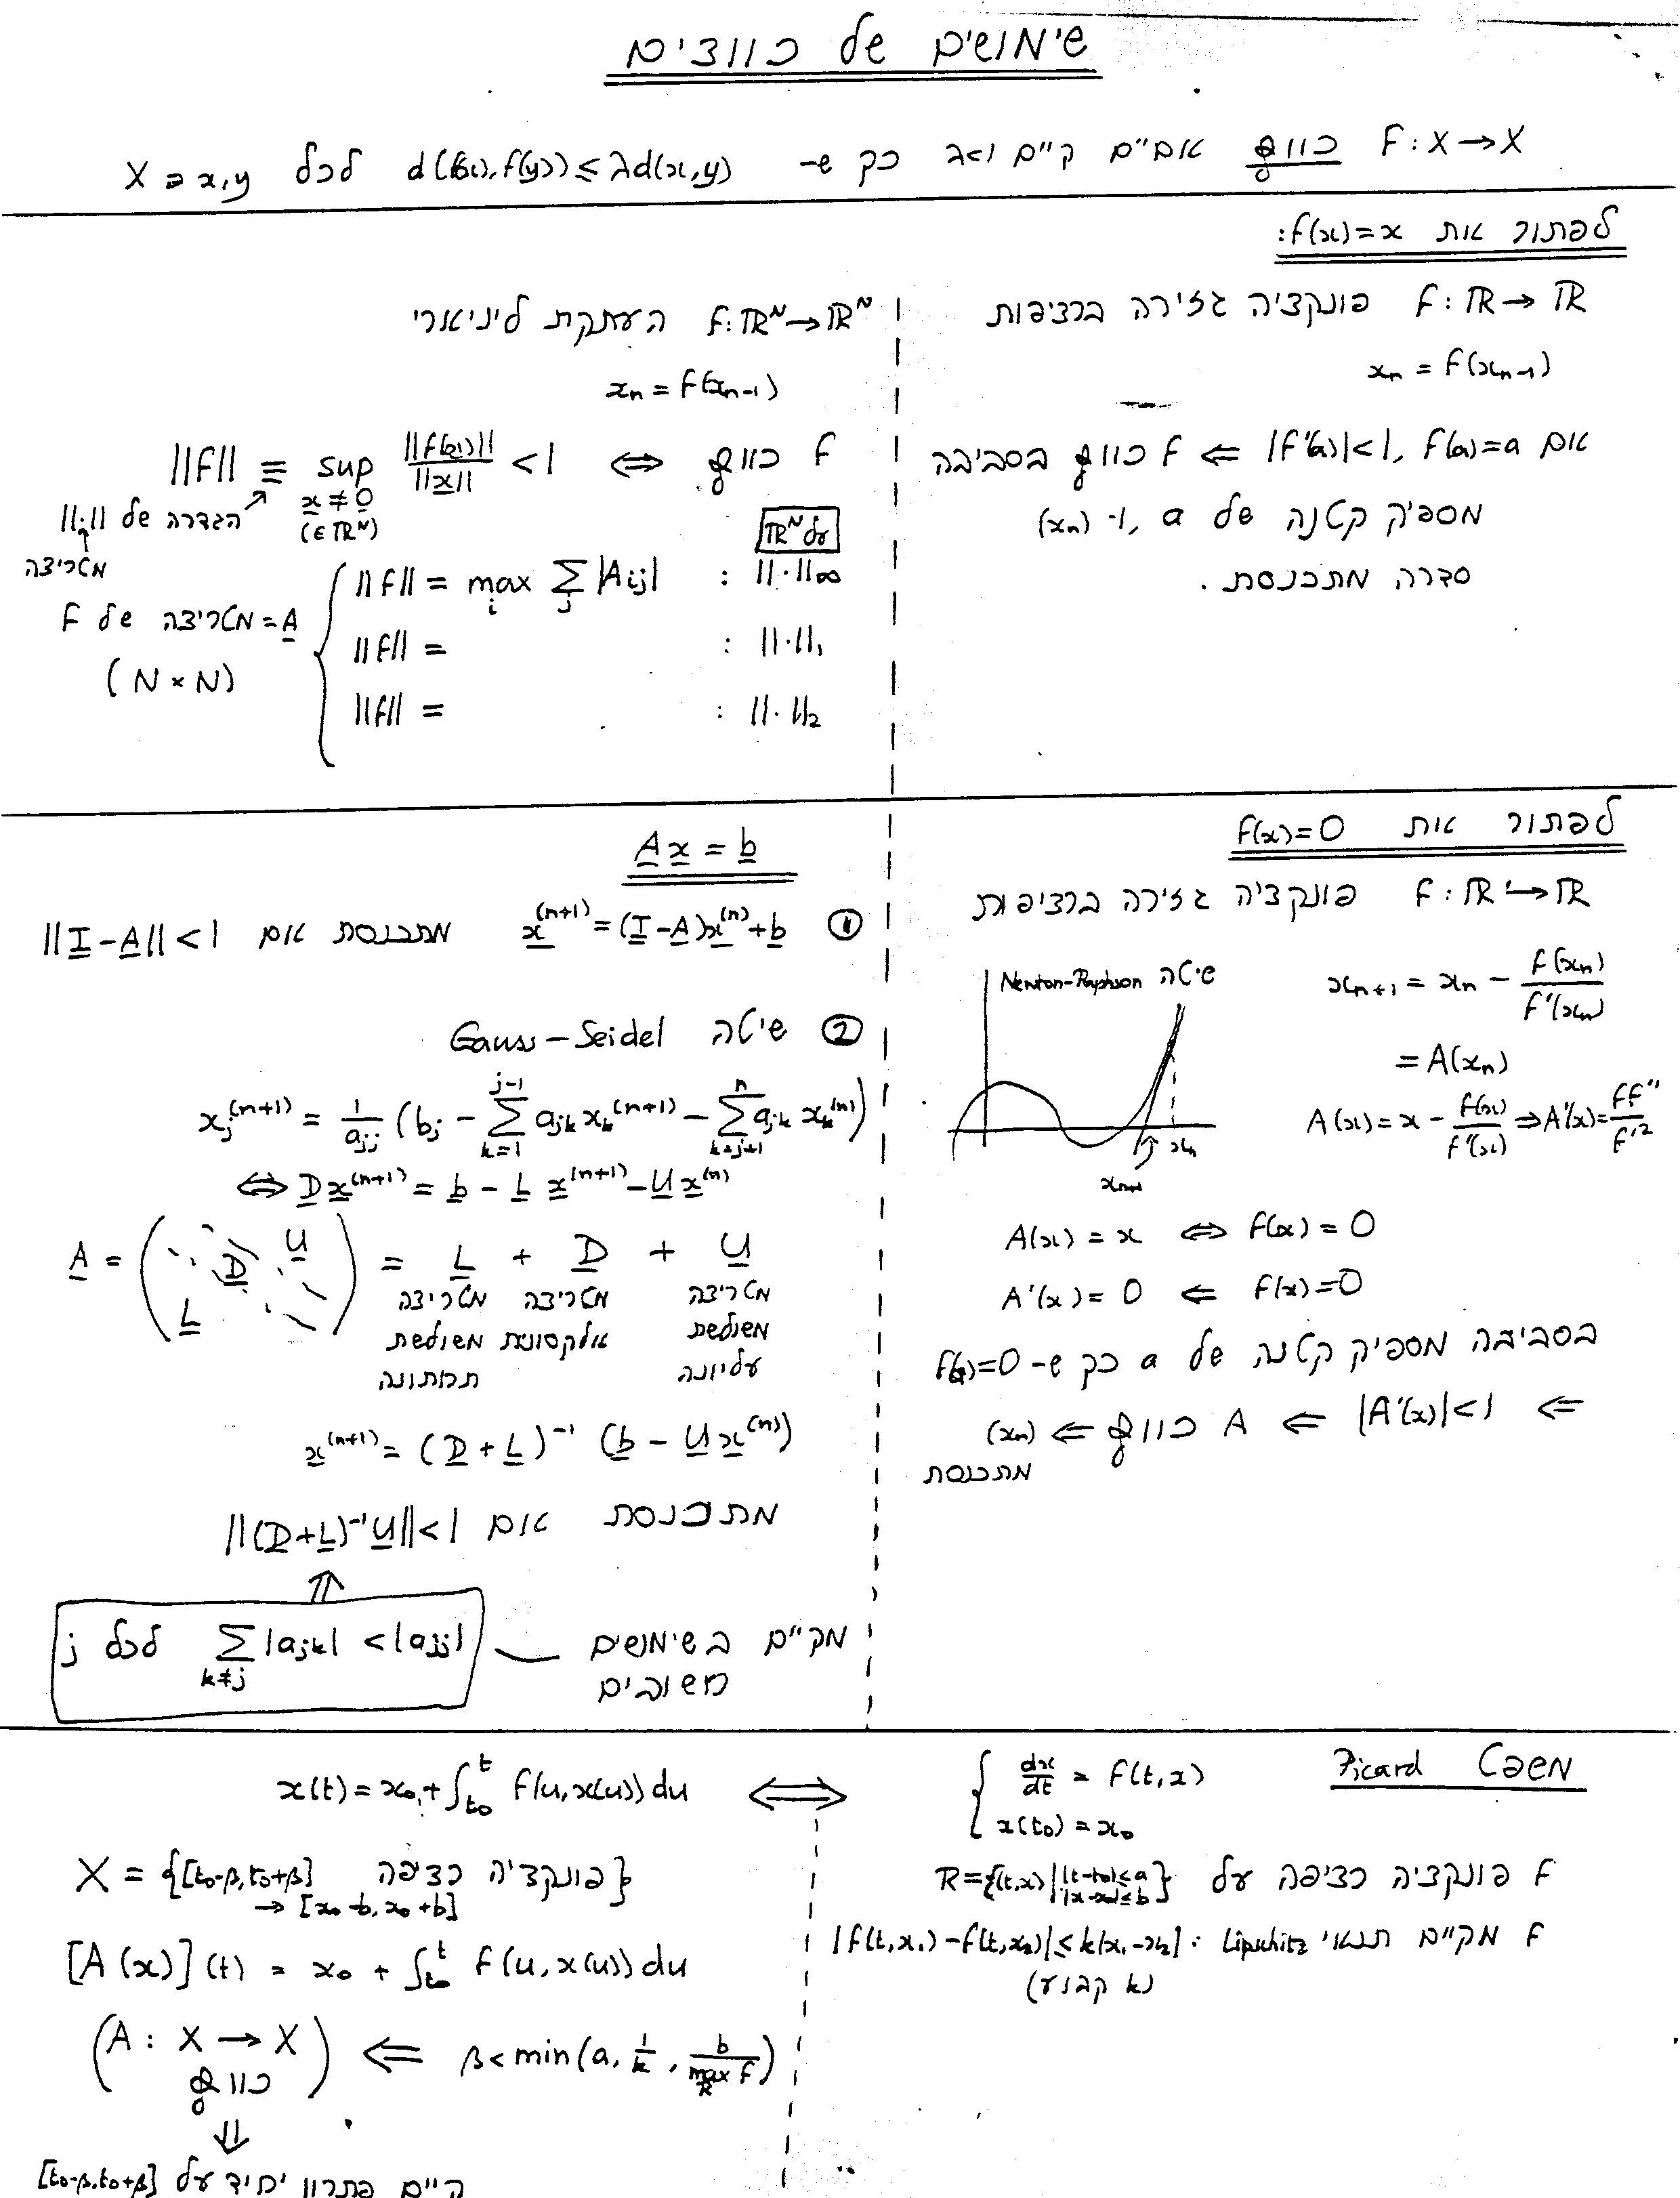 שימושים של כווצים
F: X → X כווץ אם"ם קיים λ<1 כך ש- d(f(x), f(y)) ≤ λd(x,y) לכל x,y ∈ X
לפתור את f(x)=x:
F: ℝ → ℝ פונקציה גזירה ברציפות
xₙ = F(xₙ₋₁)
אם |F'(a)|<1, F(a)=a ⇐ F כווץ בסביבה
מספיק קטנה של a, ו- (xₙ)
סדרה מתכנסת.
F: ℝᴺ → ℝᴺ העתקת ליניארי
xₙ = F(xₙ₋₁)
F כווץ ⇔ ||F|| ≡ sup_{x≠0 (∈ℝᴺ)} ||F(x)||/||x|| < 1
הגדרה של ||·||
מטריצה
על ℝᴺ
||·||∞ : ||F|| = max_i Σ_j |A_ij|
||·||₁ : ||F|| =
||·||₂ : ||F|| =
A = מטריצה של F
(N × N)
לפתור את f(x)=0
F: ℝ → ℝ פונקציה גזירה ברציפות
xₙ₊₁ = xₙ − F(xₙ)/F'(xₙ)
= A(xₙ)
A(x) = x − F(x)/F'(x) ⇒ A'(x) = FF''/F'²
שיטה Newton-Raphson
xₙ
xₙ₊₁
A(x) = x ⇔ F(x) = 0
A'(x) = 0 ⇐ F(x)=0
בסביבה מספיק קטנה של a כך ש- F(a)=0
⇐ |A'(x)|<1 ⇐ A כווץ ⇐ (xₙ)
מתכנסת
A x = b
① x⁽ⁿ⁺¹⁾ = (I−A)x⁽ⁿ⁾+b מתכנסת אם ||I−A||<1
② שיטה Gauss-Seidel
x_j⁽ⁿ⁺¹⁾ = 1/a_jj (b_j − Σ_{k=1}^{j-1} a_jk x_k⁽ⁿ⁺¹⁾ − Σ_{k=j+1}^{n} a_jk x_k⁽ⁿ⁾)
⇔ D x⁽ⁿ⁺¹⁾ = b − L x⁽ⁿ⁺¹⁾ − U x⁽ⁿ⁾
A = ( L D U ) = L + D + U
מטריצה משולשת תחתונה
מטריצה אלקסונית
מטריצה משולשת עליונה
x⁽ⁿ⁺¹⁾ = (D+L)⁻¹ (b − U x⁽ⁿ⁾)
מתכנסת אם ||(D+L)⁻¹U||<1
⇑
Σ_{k≠j} |a_jk| < |a_jj| לכל j
מקיים בשימושים
חשובים
משפט Picard
{ dx/dt = F(t,x)
x(t₀) = x₀
⇔ x(t) = x₀ + ∫_{t₀}^{t} F(u, x(u)) du
F פונקציה רציפה על R={(t,x) | |t−t₀|≤a |x−x₀|≤b}
F מקיים תנאי Lipschitz : |F(t,x₁)−F(t,x₂)| ≤ k|x₁−x₂|
(k קבוע)
X = {פונקציה רציפה [t₀−β, t₀+β]
→ [x₀−b, x₀+b]}
[A(x)](t) = x₀ + ∫_{t₀}^{t} F(u, x(u)) du
β < min(a, 1/k, b/max_R F) ⇒ (A: X → X
כווץ)
⇓
קיים פתרון יחיד על [t₀−β, t₀+β]